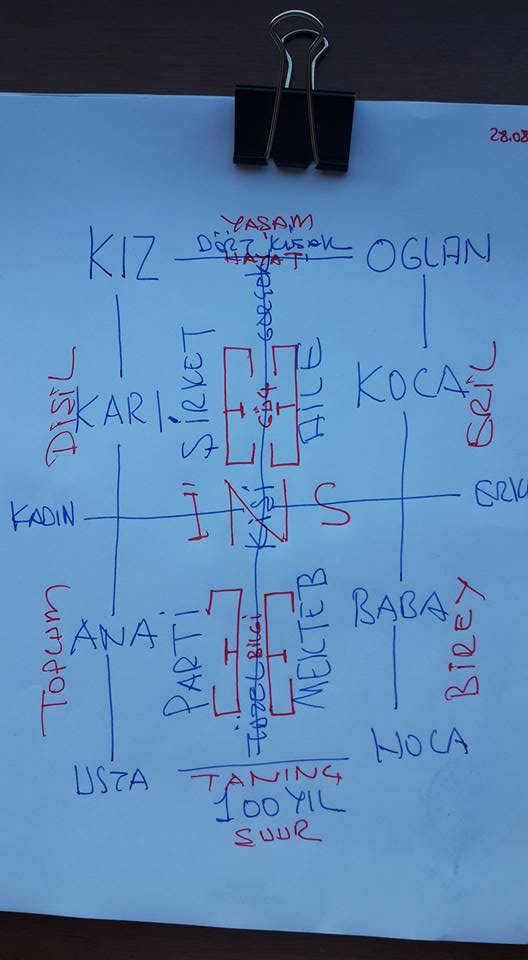 28.08
YAŞAM
KIZ DÖRT KUŞAK OGLAN
HAYATI
GERÇEK
DİŞİL KARI ŞİRKET GIDA AİLE KOCA ERİL
KADIN İNS ERK
KİŞİ
TOPLUM ANA PARTİ TÜZEL BİLGİ MEKTEB BABA BİREY
USTA HOCA
TANING
100 YIL
SUUR